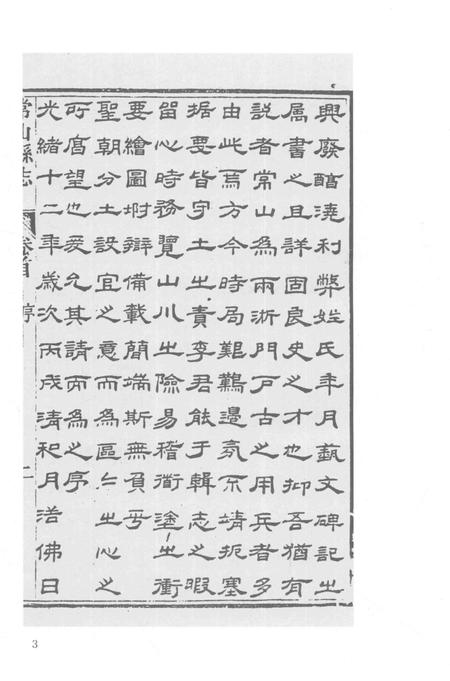 興廢醕澆利弊姓氏年月藝文碑記㞢
屬書之且詳固良史之才也抑吾猶有
說者常山為兩浙門戶古之用兵者多
由此焉方今時局艱鸛邉氛不靖扼塞
据要皆守土㞢責李君能于輯志之暇
留心時務覽山川㞢險易稽衜塗㞢衝
要繪圖坿辯備載簡端斯無負乎
聖朝分土設宜之意而為區㞢心之
所厚望也爰允其請而為之序
光緒十二年歲次丙戌清和月浴佛日
常山縣志
卷首 序
二
3